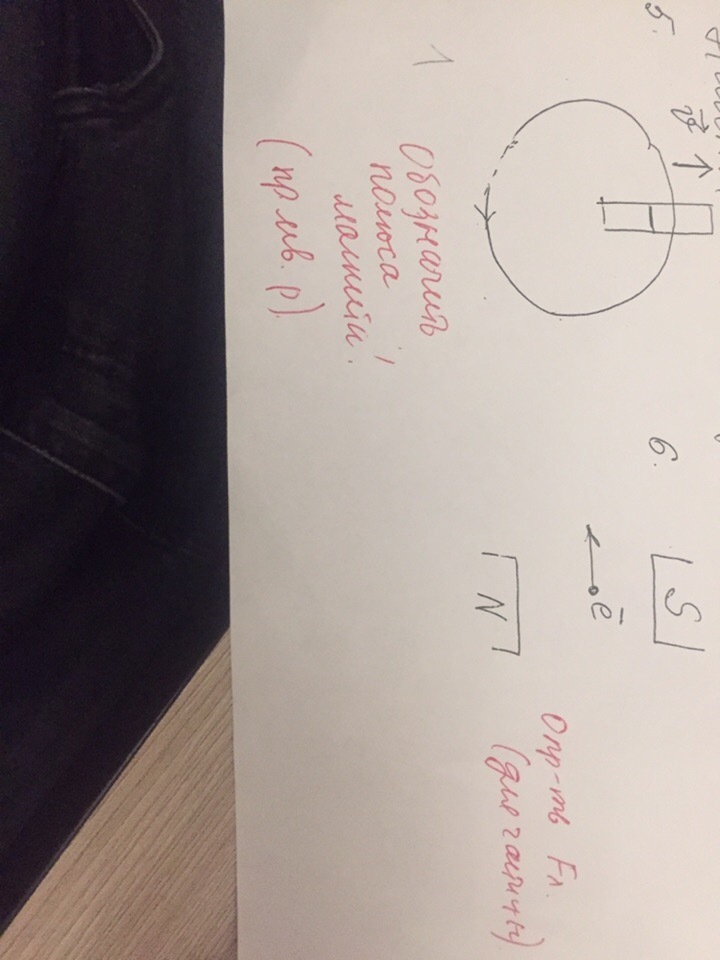 5.
v⃗
1
Обозначить
полюса
магнита!
(пр лв. р).
6.
S
ē
N
Опр-ть Fл.
(для частицы)